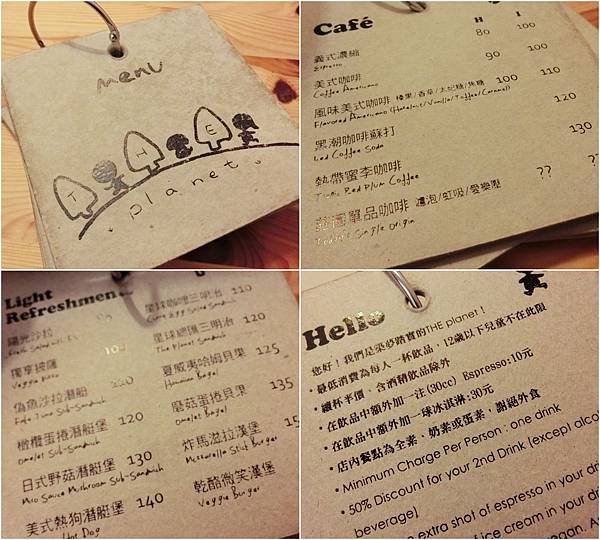 menu
THE
planet.
Café
H I
義式濃縮 80 100
Espresso
美式咖啡 90 100
Coffee Americano
風味美式咖啡 榛果/香草/太妃糖/焦糖 100 110
Flavored Americano (Hazelnut/Vanilla/Toffee/Caramel)
黑潮咖啡蘇打 120
Iced Coffee Soda
熱帶蜜李咖啡 130
Red Plum Coffee
單品咖啡 濾泡/虹吸/愛樂壓 ?? ??
Single Origin
Light
Refreshmen
陽光沙拉
Fresh Salad
獨享披薩
Veggie Pizza
偽魚沙拉潛艇 120
Fake Tuna Sub-Sandwich
橄欖蛋捲潛艇堡 120
Omelet Sub-Sandwich
日式野菇潛艇堡 130
Miso Sauce Mushroom Sub-Sandwich
美式熱狗潛艇堡 140
Hot Dog
星球咖哩三明治 110
Curry Egg Salad Sandwich
星球總匯三明治 120
The Planet Sandwich
夏威夷哈姆貝果 125
Hawaiian Bagel
蘑菇蛋捲貝果 135
Omelet Bagel
炸馬滋拉漢堡
Mozzarella Stick Burger
乾酪微笑漢堡
Veggie Burger
Hello
您好!我們是築夢踏實的THE planet!
• 最低消費為每人一杯飲品,12歲以下兒童不在此限
• 續杯半價,含酒精飲品除外
• 在飲品中額外加一注(30cc) Espresso:10元
• 在飲品中額外加一球冰淇淋:30元
• 店內餐點為全素、奶素或蛋素,謝絕外食
• Minimum Charge Per Person : one drink
• 50% Discount for your 2nd Drink (except alco
beverage)
n extra shot of espresso in your drin
of ice cream in your dr